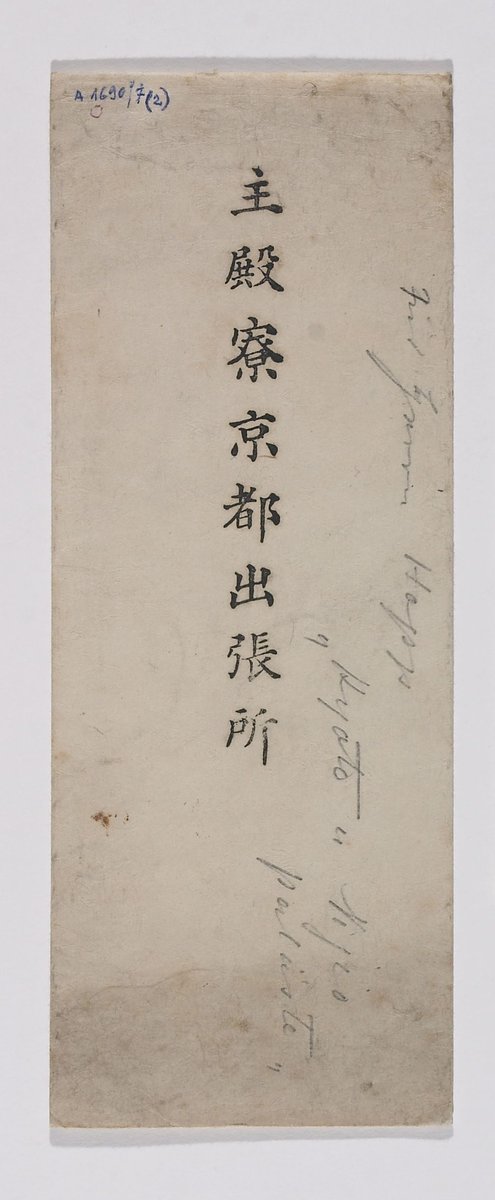 A 1690/7 (2)
主殿寮京都出張所
Hopp
"Kyoto u Nijio
paläste"